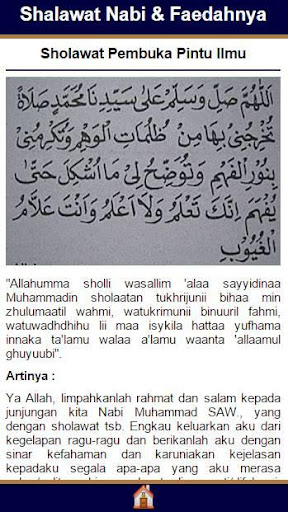 Shalawat Nabi & Faedahnya
Sholawat Pembuka Pintu Ilmu
اَللّٰهُمَّ صَلِّ وَسَلِّمْ عَلَى سَيِّدِنَا مُحَمَّدٍ صَلَاةً
تُخْرِجُنِيْ بِهَا مِنْ ظُلُمَاتِ الْوَهْمِ وَتُكْرِمُنِيْ
بِنُوْرِ الْفَهْمِ وَتُوَضِّحُ لِيْ مَا اَشْكِلَ حَتّٰى
يُفْهَمَ اِنَّكَ تَعْلَمُ وَلَا اَعْلَمُ وَاَنْتَ عَلَّامُ
الْغُيُوْبِ
"Allahumma sholli wasallim 'alaa sayyidinaa
Muhammadin sholaatan tukhrijunii bihaa min
zhulumaatil wahmi, watukrimunii binuuril fahmi,
watuwadhdhihu lii maa isykila hattaa yufhama
innaka ta'lamu walaa a'lamu waanta 'allaamul
ghuyuubi".
Artinya :
Ya Allah, limpahkanlah rahmat dan salam kepada
junjungan kita Nabi Muhammad SAW., yang
dengan sholawat tsb. Engkau keluarkan aku dari
kegelapan ragu-ragu dan berikanlah aku dengan
sinar kefahaman dan karuniakan kejelasan
kepadaku segala apa-apa yang aku merasa